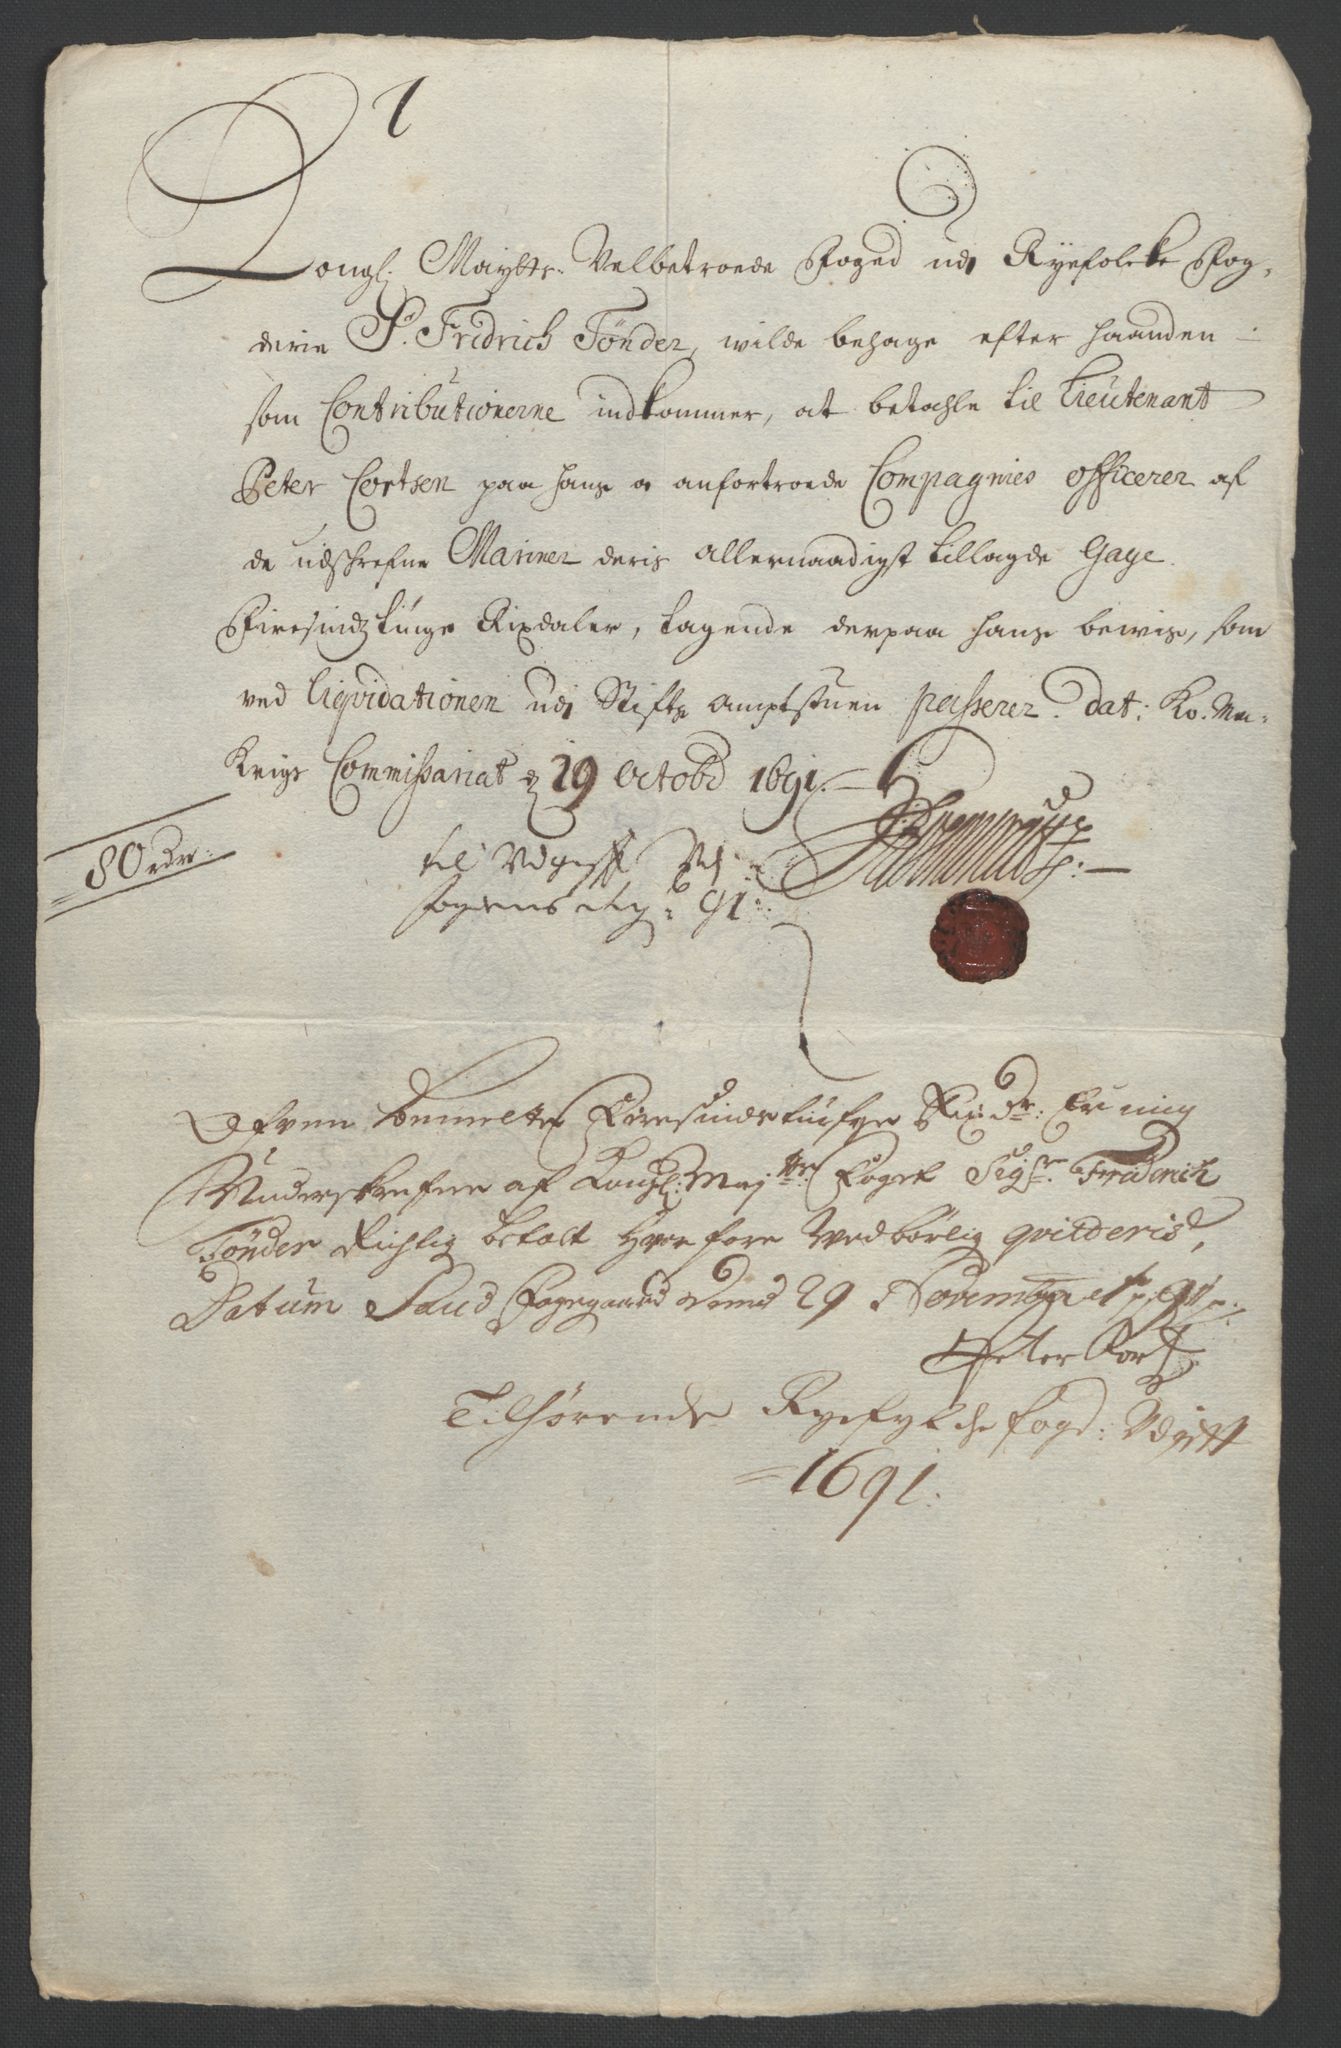 1
Kongl: Maÿtts: Velbetroede Foged udi Ryefolcke Fog-
derie Sr. Fridrich Tønder, wilde behage efter haanden
som Contributionerne indkommer, at betahle til Lieutenant
Peter Cortsen paa hans anfortroede Compagnies officerer af
de udschrefne Mariner deris allernaadigst tillagde Gage
Firesindztiuge Rixdaler, tagende derpaa hans bewis, som
ved Liqvidationen udi Stifts amptstuen passerer. dat: Ko: Ma:
Krigs Commissariat d 29 Octobr 1691.
80 rdr:
til Udgifft
fogdens 91
Ofven bemelte Firesindstiufve Rixdr: Er mig
Underskrefne af Kongl: Maj:tts: Foget Sigr. Friderich
Tønder Richtig betalt Hvorfore Vedbørlig qvitderis,
Datum Saud Fogegaard dend 29 Novembr 1691
Peter Cort
Tilhørende Ryefylche fogd: Udgifft
1691.